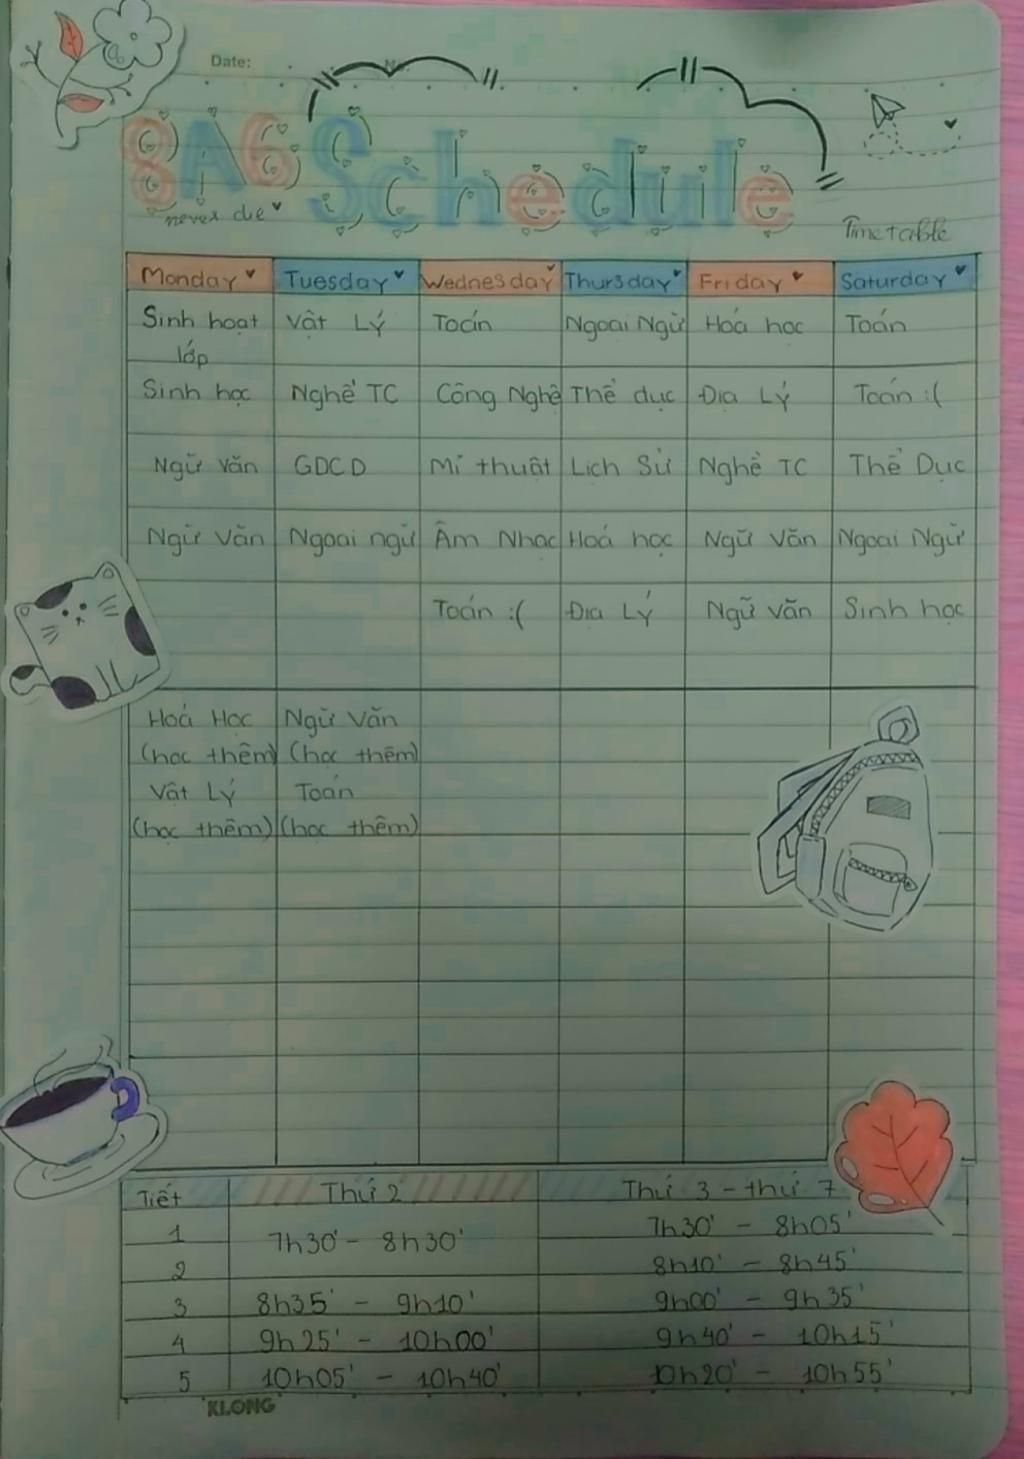 Date:
8A6 Schedule
never die
Timetable
Monday Tuesday Wednesday Thursday Friday Saturday
Sinh hoạt lớp Vật Lý Toán Ngoại Ngữ Hoá học Toán
Sinh học Nghề TC Công Nghệ Thể dục Địa Lý Toán :(
Ngữ Văn GDCD Mĩ thuật Lịch Sử Nghề TC Thể Dục
Ngữ Văn Ngoại ngữ Âm Nhạc Hoá học Ngữ Văn Ngoại Ngữ
Toán :( Địa Lý Ngữ Văn Sinh học
Hoá Học Ngữ Văn
(học thêm) (học thêm)
Vật Lý Toán
(học thêm) (học thêm)
Tiết Thứ 2 Thứ 3 - thứ 7
1 7h30' - 8h30' 7h30' - 8h05'
2 8h10' - 8h45'
3 8h35' - 9h10' 9h00' - 9h35'
4 9h25' - 10h00' 9h40' - 10h15'
5 10h05' - 10h40' 10h20' - 10h55'
KLONG